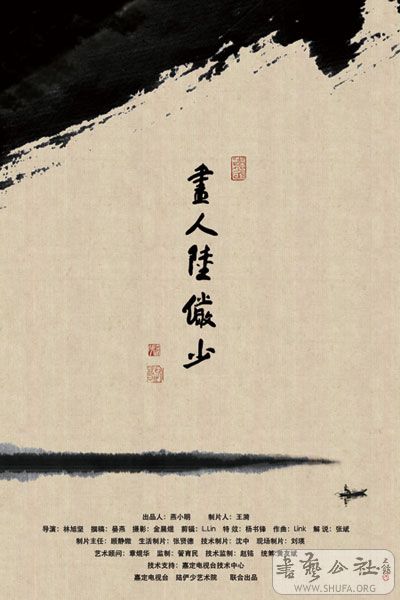 畫人陸儼少
出品人：燕小明 制片人：王漪
导演：林旭坚 撰稿：晏燕 摄影：金晨煜 剪辑：L.Lin 特效：杨书锋 作曲：Link 解说：张斌
制片主任：顾静微 生活制片：张贤德 技术制片：沈中 现场制片：刘瑛
艺术顾问：章焜华 监制：管育民 技术监制：赵铭 统筹：黄友斌
技术支持：嘉定电视台技术中心
嘉定电视台 陆俨少艺术院 联合出品
書藝公社
WWW.SHUFA.ORG